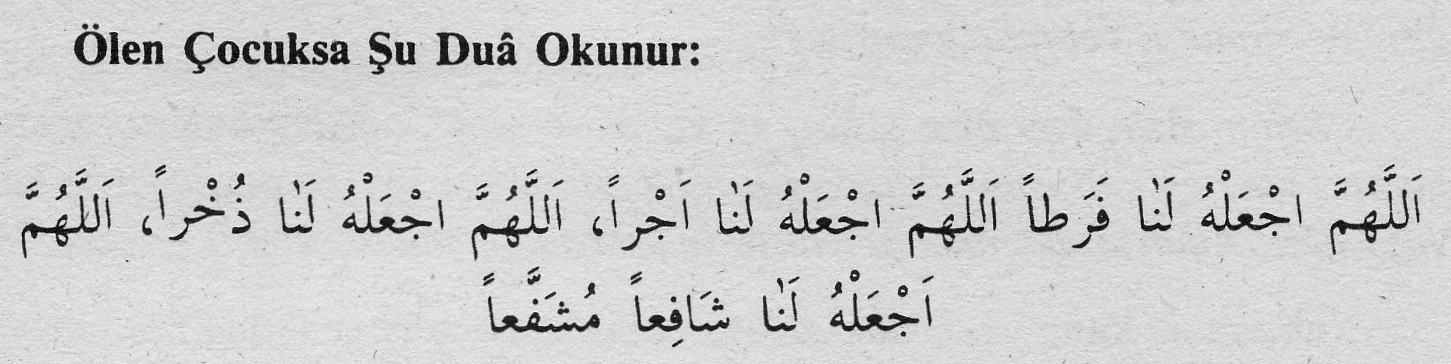 Ölen Çocuksa Şu Duâ Okunur:
اَللَّهُمَّ اجْعَلْهُ لَنٰا فَرَطاً اَللَّهُمَّ اجْعَلْهُ لَنٰا اَجْراً، اَللَّهُمَّ اجْعَلْهُ لَنٰا ذُخْراً، اَللَّهُمَّ
اَجْعَلْهُ لَنٰا شَافِعاً مُشَفَّعاً